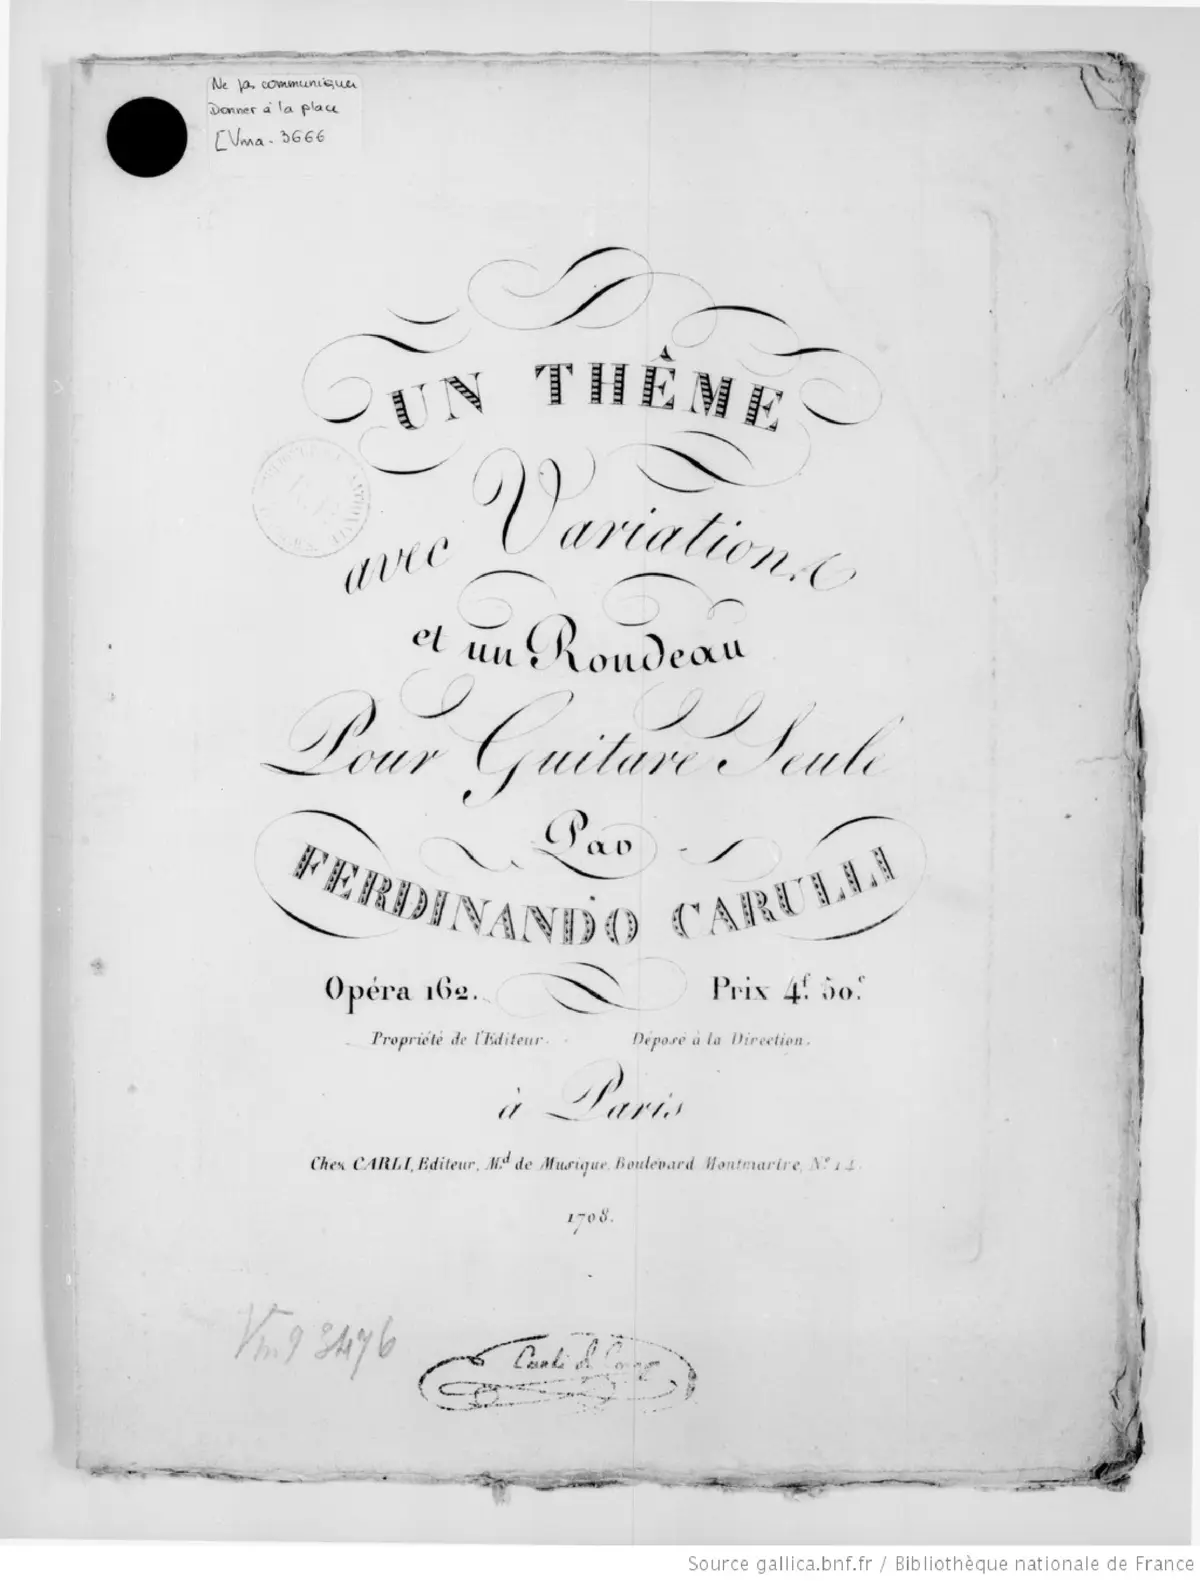 Ne pas communiquer
Donner à la place
[Vma. 3666
UN THÊME
avec Variations
et un Rondeau
Pour Guitare Seule
Par
FERDINANDO CARULLI
Opéra 162. Prix 4f. 50c.
Propriété de l'Editeur. Déposé à la Direction.
à Paris
Chez CARLI, Editeur, Md de Musique, Boulevard Montmartre, No 14.
1708.
Vm9 3476
Source gallica.bnf.fr / Bibliothèque nationale de France